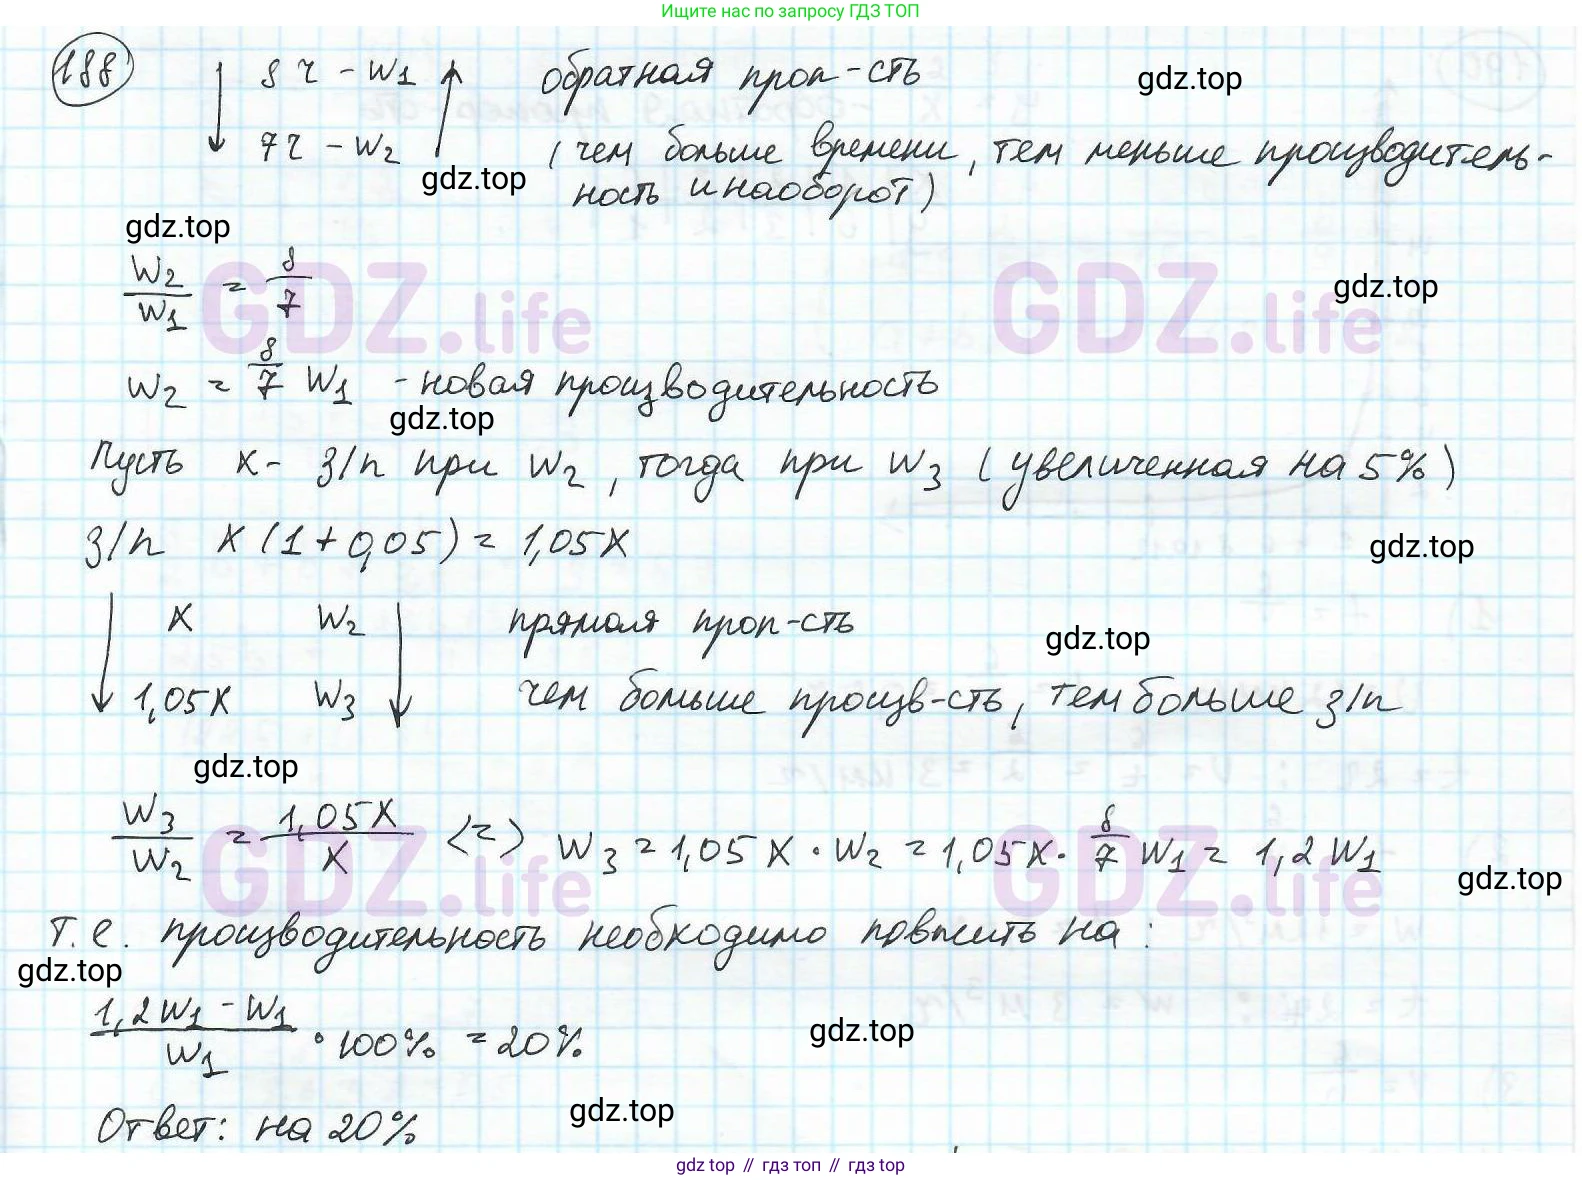 Ищите нас по запросу ГДЗ ТОП
188
8 ч - W1 обратная проп-сть
gdz.top
7 ч - W2 (чем больше времени, тем меньше производитель-
gdz.top
ность и наоборот)
gdz.top
W2/W1 = 8/7
GDZ.life GDZ.life
gdz.top
W2 = 8/7 W1 - новая производительность
gdz.top
Пусть x - з/п при W2, тогда при W3 (увеличенная на 5%)
з/п x(1+0,05) = 1,05x
gdz.top
x W2 прямая проп-сть
gdz.top
1,05x W3 чем больше произв-сть, тем больше з/п
gdz.top
W3/W2 = 1,05x/x <=> W3 = 1,05x · W2 = 1,05x · 8/7 W1 = 1,2 W1
GDZ.life GDZ.life
gdz.top
т.е. производительность необходимо повысить на:
gdz.top
(1,2W1 - W1)/W1 · 100% = 20%
gdz.top
Ответ: на 20%
gdz.top
gdz top // гдз топ // gdz top